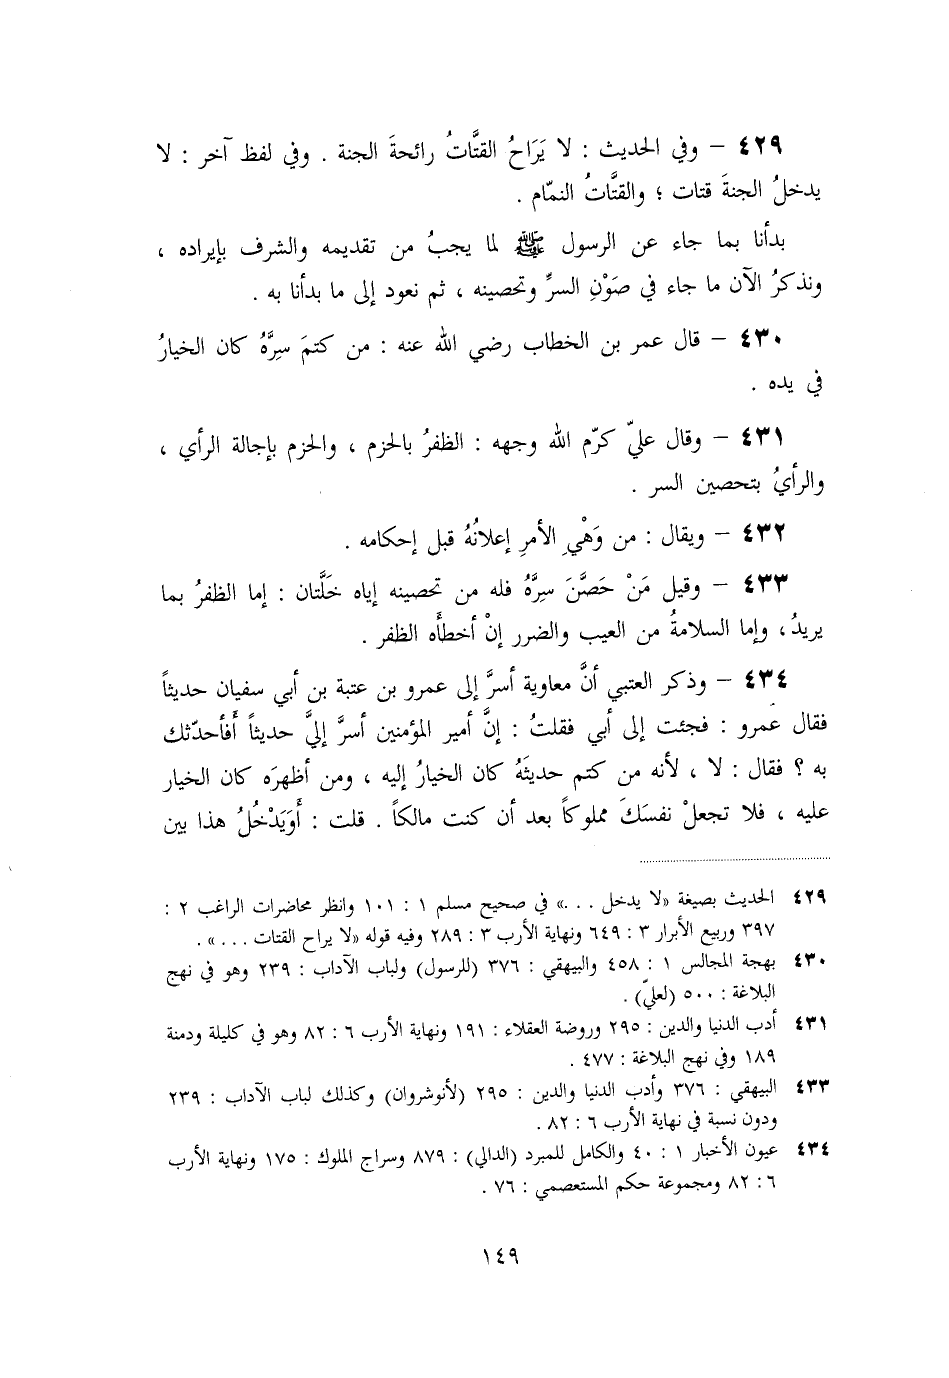 ٤٢٩ – وفي الحديث : لا يَرَاحُ القتَّاتُ رائحةَ الجنة . وفي لفظ آخر : لا
يدخلُ الجنةَ قتات ؛ والقتَّاتُ النمّام .
بدأنا بما جاء عن الرسول ﷺ لما يجبُ من تقديمه والشرف بإيراده ،
ونذكرُ الآن ما جاء في صَوْنِ السرِّ وتحصينه ، ثم نعود إلى ما بدأنا به .
٤٣٠ – قال عمر بن الخطاب رضي الله عنه : من كتمَ سِرَّهُ كان الخيارُ
في يده .
٤٣١ – وقال عليّ كرّم الله وجهه : الظفرُ بالحزم ، والحزم بإجالة الرأي ،
والرأيُ بتحصين السر .
٤٣٢ – ويقال : من وَهْيِ الأمرِ إعلانُهُ قبل إحكامه .
٤٣٣ – وقيل مَنْ حَصَّنَ سِرَّهُ فله من تحصينه إياه خَلَّتان : إما الظفرُ بما
يريدُ ، وإما السلامةُ من العيب والضرر إنْ أخطأَه الظفر .
٤٣٤ – وذكر العتبي أنَّ معاوية أسرَّ إلى عمرو بن عتبة بن أبي سفيان حديثاً
فقال عمرو : فجئت إلى أبي فقلتُ : إنَّ أمير المؤمنين أسرَّ إليَّ حديثاً أَفأحدّثك
به ؟ فقال : لا ، لأنه من كتم حديثَهُ كان الخيارُ إليه ، ومن أظهرَه كان الخيار
عليه ، فلا تجعلْ نفسَكَ مملوكاً بعد أن كنت مالكاً . قلت : أَوَيَدْخُلُ هذا بين
٤٢٩ الحديث بصيغة «لا يدخل . . .» في صحيح مسلم ١ : ١٠١ وانظر محاضرات الراغب ٢ :
٣٩٧ وربيع الأبرار ٣ : ٦٤٩ ونهاية الأرب ٣ : ٢٨٩ وفيه قوله «لا يراح القتات . . .» .
٤٣٠ بهجة المجالس ١ : ٤٥٨ والبيهقي : ٣٧٦ (للرسول) ولباب الآداب : ٢٣٩ وهو في نهج
البلاغة : ٥٠٠ (لعليّ) .
٤٣١ أدب الدنيا والدين : ٢٩٥ وروضة العقلاء : ١٩١ ونهاية الأرب ٦ : ٨٢ وهو في كليلة ودمنة
١٨٩ وفي نهج البلاغة : ٤٧٧ .
٤٣٣ البيهقي : ٣٧٦ وأدب الدنيا والدين : ٢٩٥ (لأنوشروان) وكذلك لباب الآداب : ٢٣٩
ودون نسبة في نهاية الأرب ٦ : ٨٢ .
٤٣٤ عيون الأخبار ١ : ٤٠ والكامل للمبرد (الدالي) : ٨٧٩ وسراج الملوك : ١٧٥ ونهاية الأرب
٦ : ٨٢ ومجموعة حكم المستعصمي : ٧٦ .
١٤٩